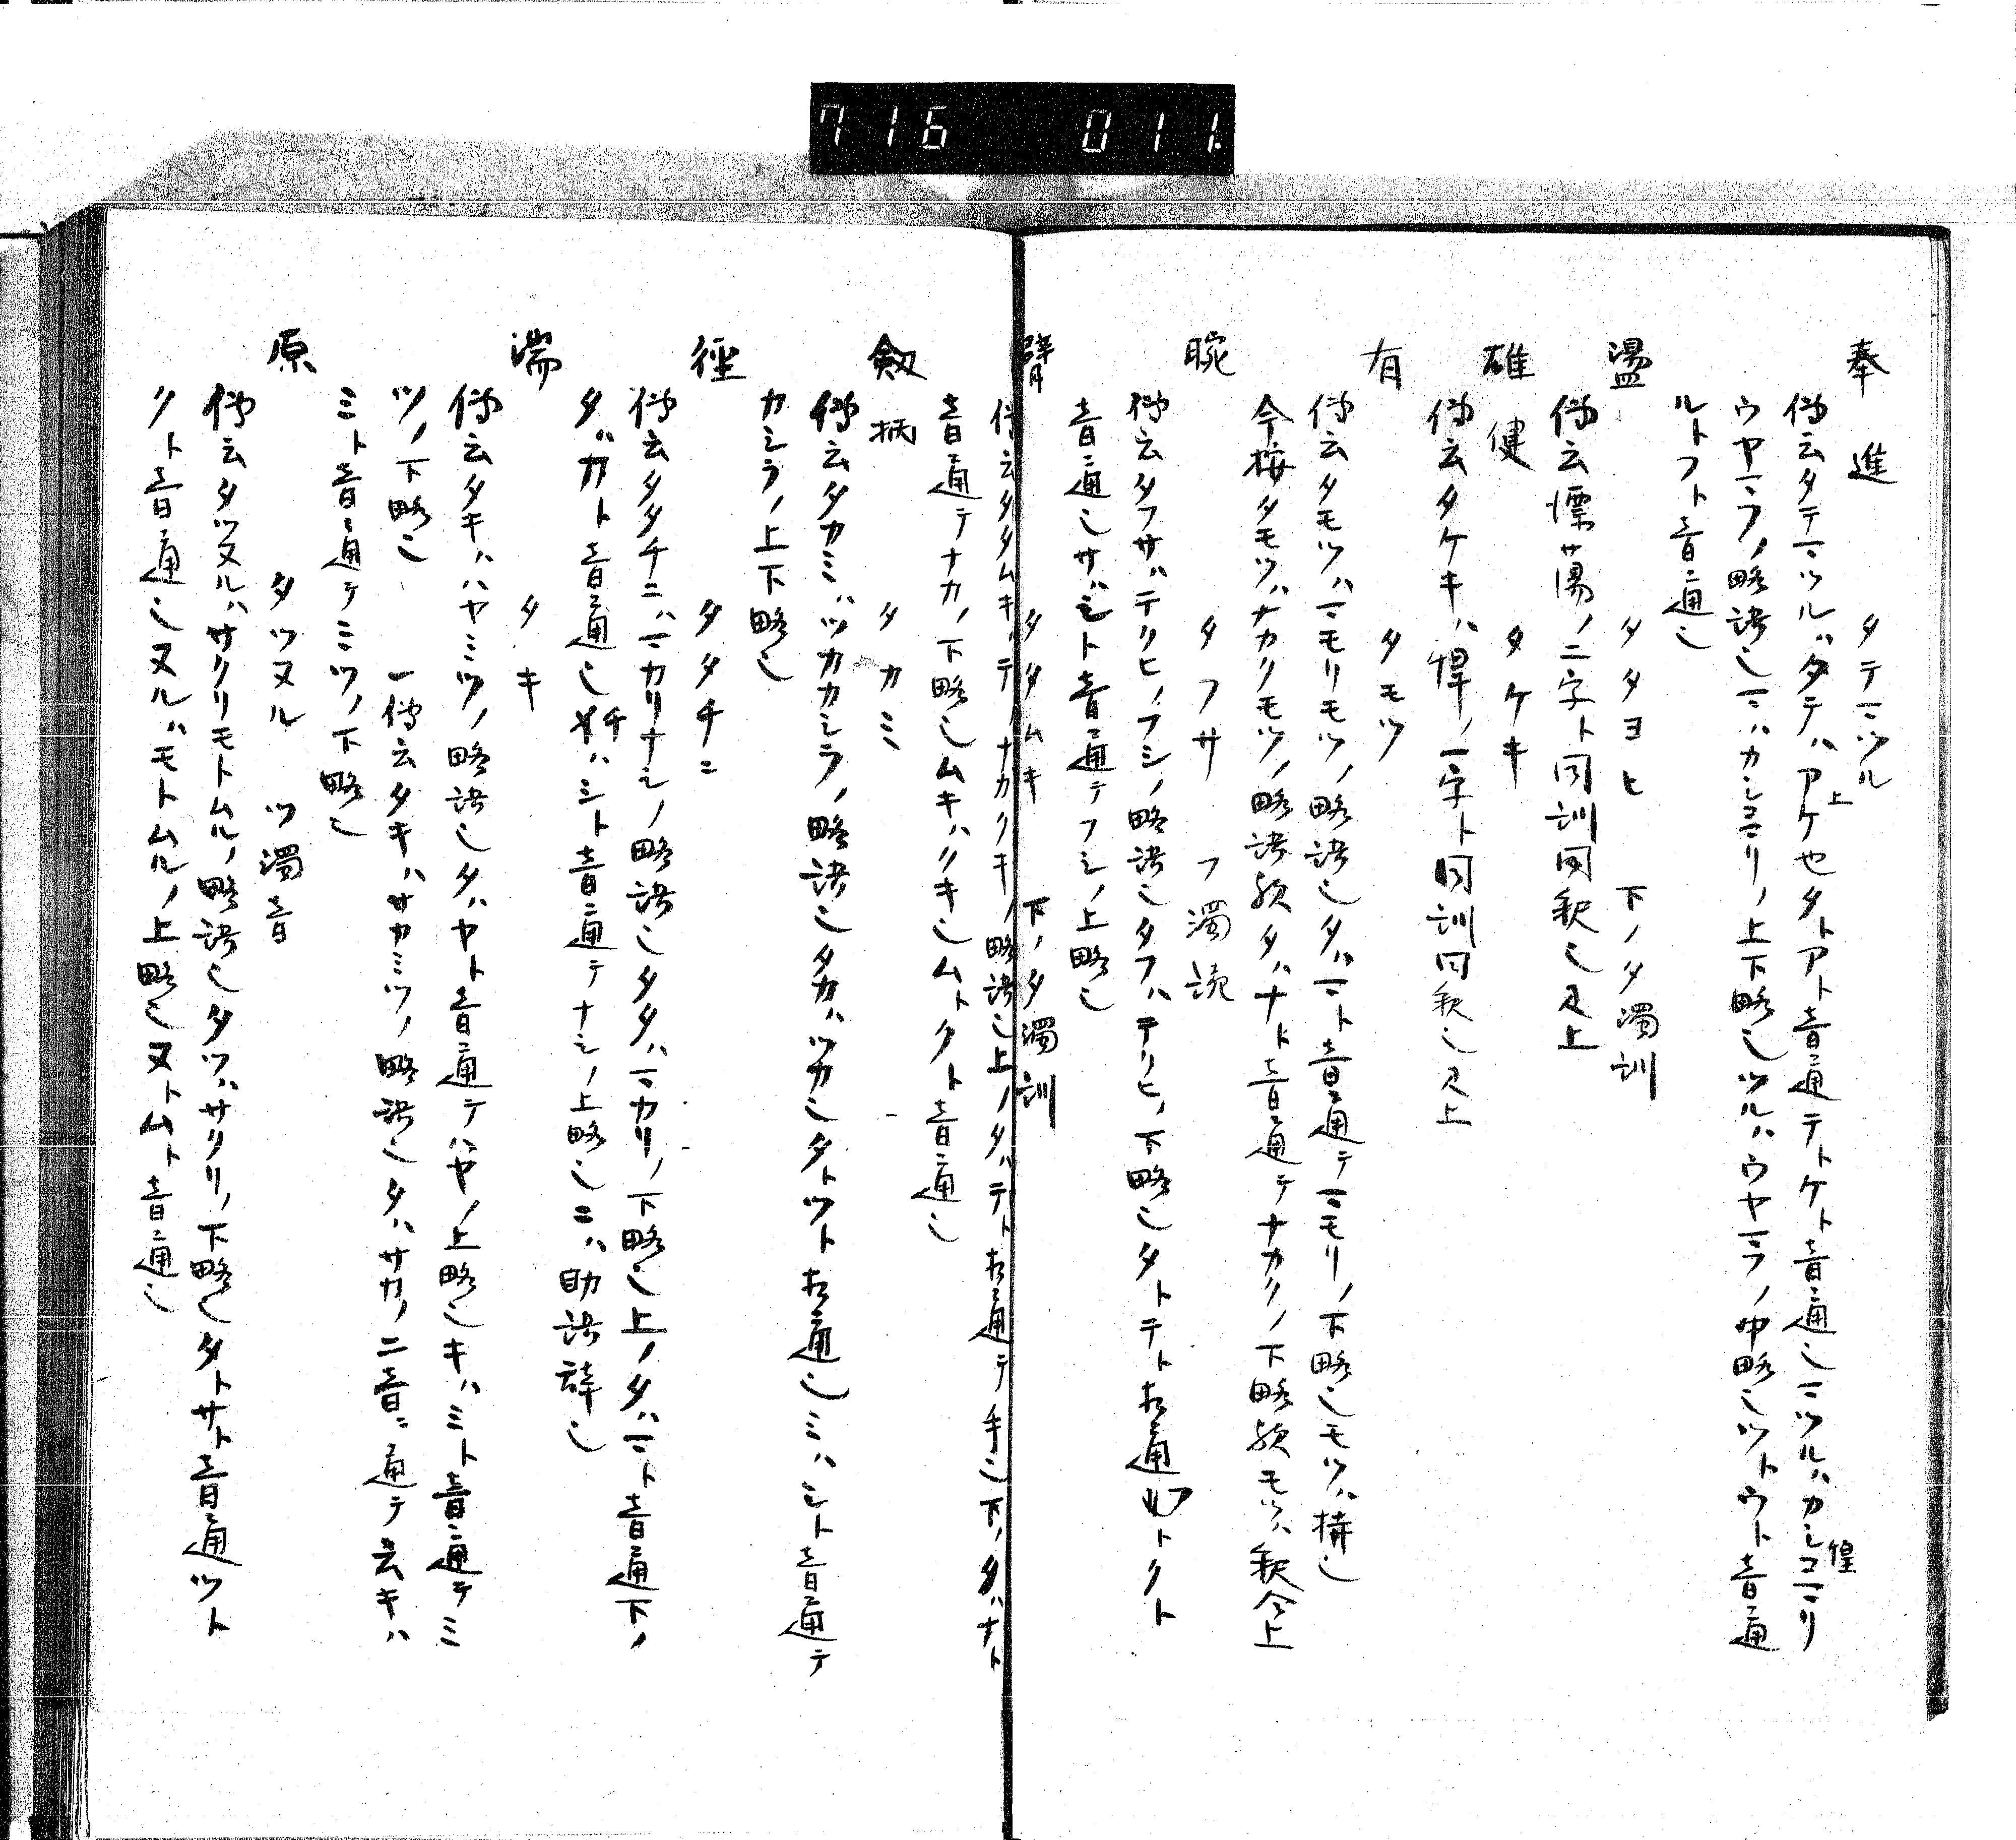 716 011.
奉進 タテマツル
傳云タテマツルハタテハアケ上也タトアト音ニ通テトケト音ニ通シマツルハカシコマリ惶
ウヤマフノ略語也マハカシコマリノ上下略也ツルハウヤマフノ中略也ツトウト音通
ルトフト音ニ通シ
盪 タタヨヒ 下ノタ濁訓
傳云漂蕩ノ二字ト同訓同釈也見上
雄健 タケキ
傳云タケキハ悍ノ一字ト同訓同釈也見上
有 タモツ
傳云タモツハマモリモツノ略語也タハマト音ニ通テマモリノ下略也モツハ持也
今按タモツハナカクモツノ略語歟タハナト音ニ通テナカクノ下略歟モツハ釈全上
腕 タフサ フ濁読
傳云タフサハテクヒノフシノ略語也タフハテクヒノ下略也タトテト相通フトクト
音ニ通也サハシト音ニ通テフシノ上略也
臂 タタムキ 下ノタ濁訓
傳云タタムキハテノナカクキノ略語也上ノタハテト相通テ手也下ノタハナト
音ニ通テナカノ下略也ムキハクキ也ムトクト音ニ通也
剱柄 タカミ
傳云タカミハツカカシラノ略語也タカハツカ也タトツト相通也ミハシト音ニ通テ
カシラノ上下略也
徑 タタチニ
傳云タタチニハマカリナシノ略語也タタハマカリノ下略也上ノタハマト音ニ通下ノ
タハカト音ニ通也チハシト音ニ通テナシノ上略也ニハ助語辞也
湍 タキ
傳云タキハハヤミツノ略語也タハヤト音ニ通テハヤノ上略也キハミト音ニ通テミ
ツノ下略也 一傳云タキハサカミツノ略語也タハサカノ二音ニ通テ云キハ
ミト音ニ通テミツノ下略也
原 タツヌル ツ濁音
傳云タツヌルハサクリモトムルノ略語也タツハサクリノ下略也タトサト音ニ通ツト
クト音ニ通也ヌルハモトムルノ上略也ヌトムト音ニ通也